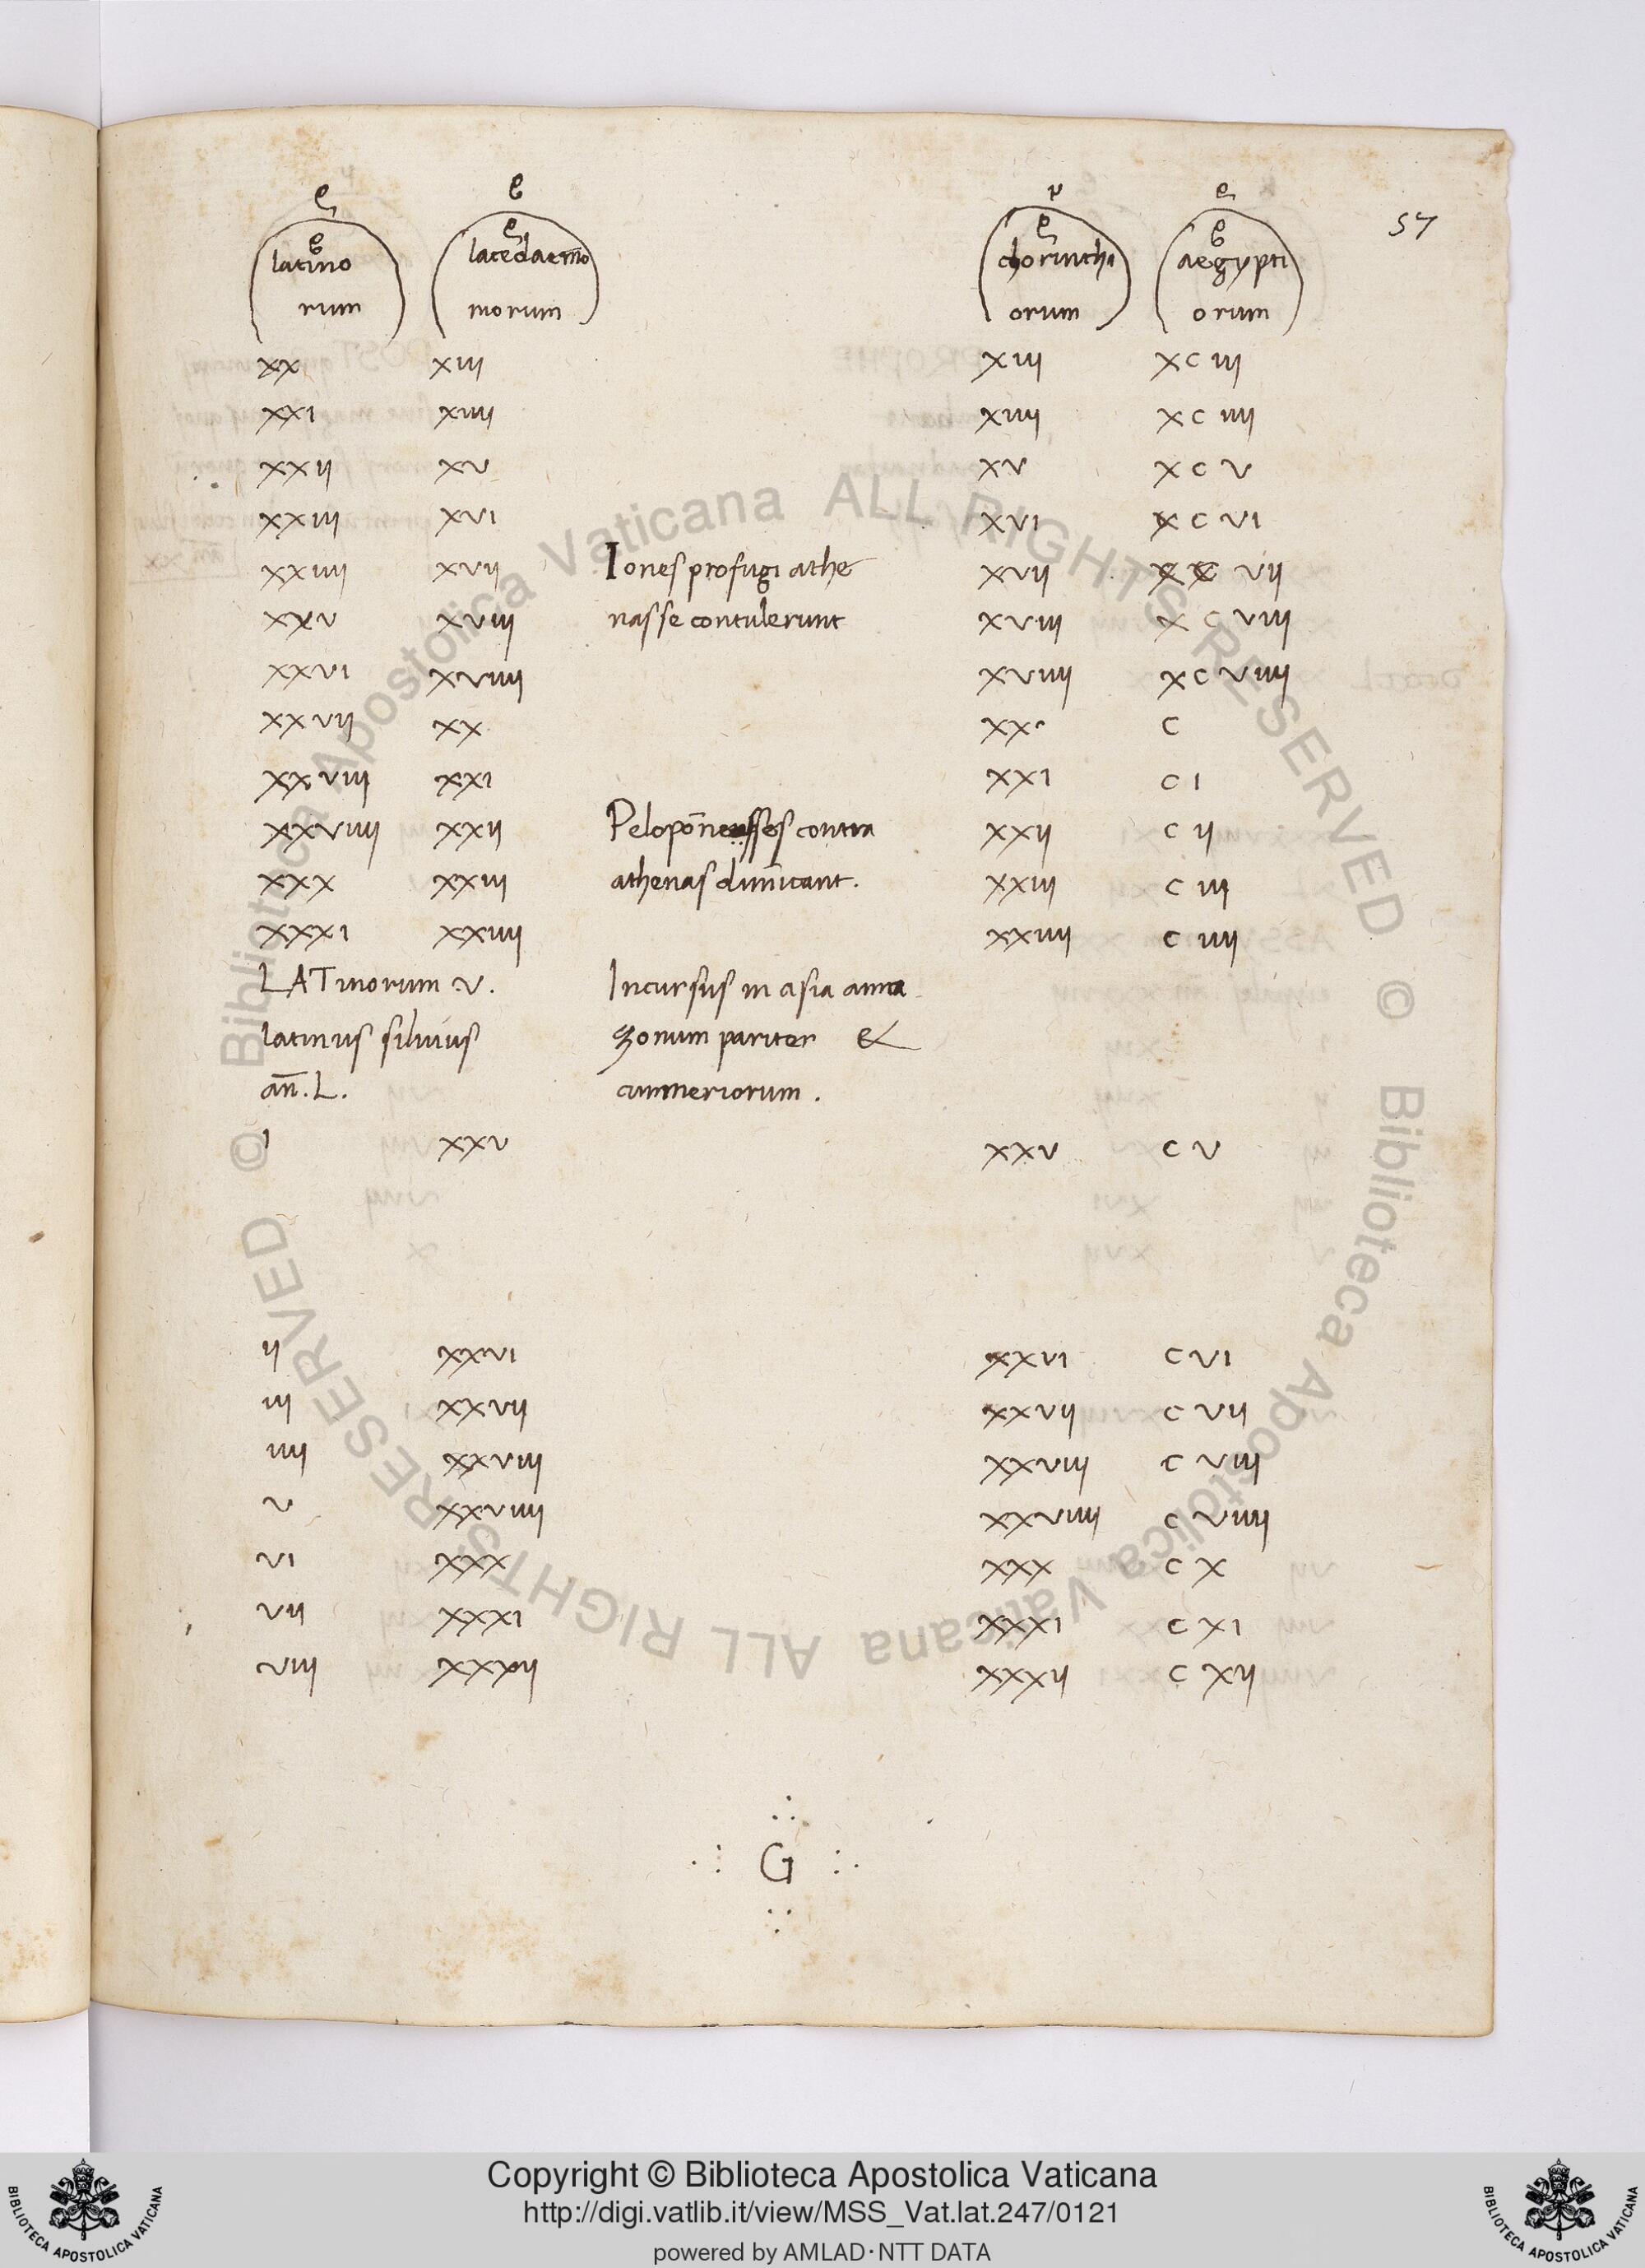 57
ę e ę ę
e ę ę e
latino lacedaemo chorinthi aegypti
rum morum orum orum
xx xiij xiij xc iij
xxi xiiij xiiij xc iiij
xxij xv xv xc v
xxiij xvi xvi xc vi
xxiiij xvij Iones profugi athe xvij xc vij
xxv xviij nas se contulerunt xviij xc viij
xxvi xviiij xviiij xc viiij
xxvij xx xx c
xxviij xxi xxi c i
xxviiij xxij contra xxij c ij
xxx xxiij athenas dimicant. xxiij c iij
xxxi xxiiij xxiiij c iiij
LATinorum .v. Incursus in asia ama
latinus siluius zonum pariter &
an̄. L. cimmeriorum.
i xxv xxv c v
ij xxvi xxvi c vi
iij xxvij xxvij c vij
iiij xxviij xxviij c viij
v xxviiij xxviiij c viiij
vi xxx xxx c x
vij xxxi xxxi c xi
viij xxxij xxxij c xij
G
Biblioteca Apostolica Vaticana ALL RIGHTS RESERVED © Biblioteca Apostolica Vaticana ALL RIGHTS RESERVED ©
Copyright © Biblioteca Apostolica Vaticana
http://digi.vatlib.it/view/MSS_Vat.lat.247/0121
powered by AMLAD·NTT DATA
BIBLIOTECA APOSTOLICA VATICANA
BIBLIOTECA APOSTOLICA VATICANA